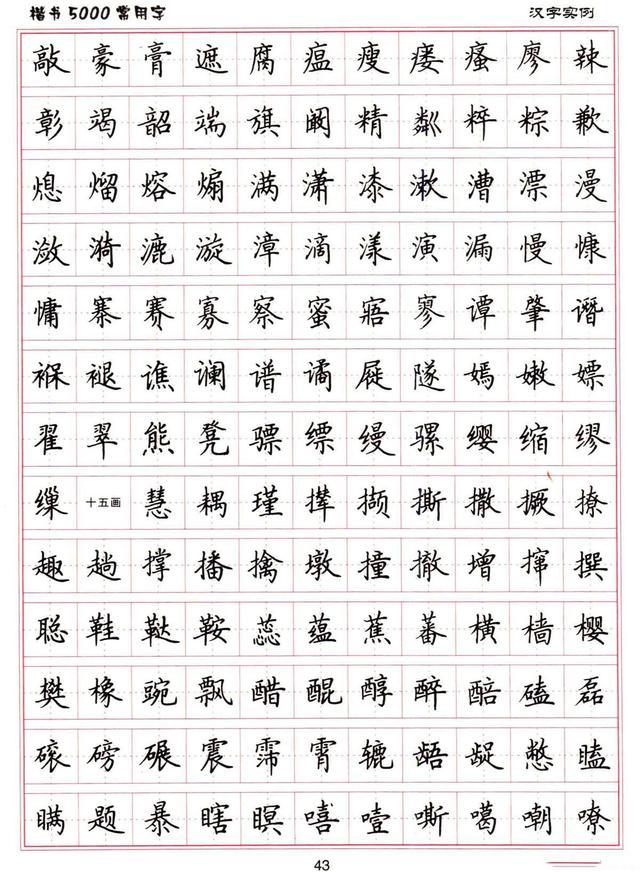 楷书5000常用字 汉字实例
敲 豪 膏 遮 腐 瘟 瘦 瘘 瘙 廖 辣
彰 竭 韶 端 旗 阚 精 粼 粹 粽 歉
熄 熘 熔 煽 满 潇 漆 漱 漕 漂 漫
潋 漪 漉 漩 漳 滴 漾 演 漏 慢 慷
慵 寨 赛 寡 察 蜜 寤 寥 谭 肇 谮
褓 褪 谯 谰 谱 谲 屣 隧 嫣 嫩 嫖
翟 翠 熊 凳 骠 缥 缦 骡 缨 缩 缪
缫 十五画 慧 耦 瑾 撵 撷 撕 撒 撅 撩
趣 趟 撑 播 擒 墩 撞 撤 增 撺 撰
聪 鞋 鞑 鞍 蕊 蕴 蕉 蕃 横 樯 樱
樊 橡 豌 飘 醋 醌 醇 醉 醅 磕 磊
磙 磅 碾 震 霈 霄 辘 龉 龊 憋 瞌
瞒 题 暴 瞎 瞑 嘻 噎 嘶 噶 嘲 嘹
43